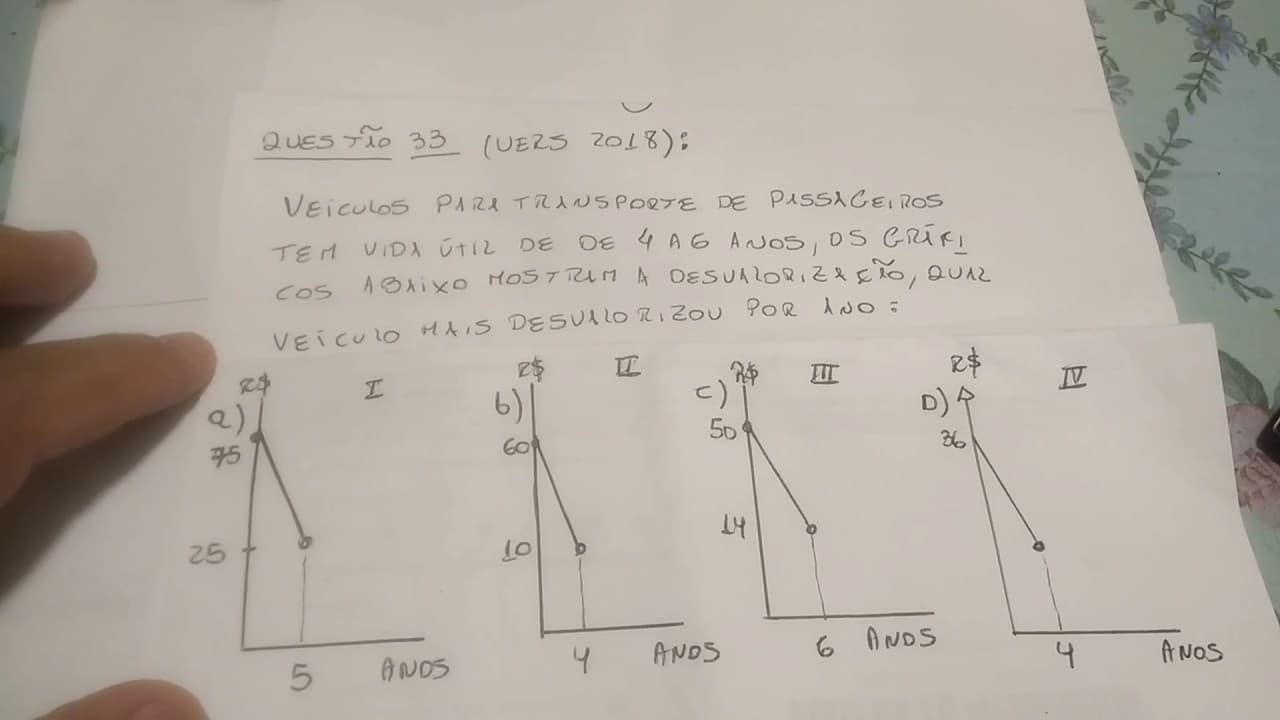 QUESTÃO 33 (UERS 2018):
VEÍCULOS PARA TRANSPORTE DE PASSAGEIROS
TEM VIDA ÚTIL DE DE 4 A 6 ANOS, OS GRÁFI
COS ABAIXO MOSTRAM A DESVALORIZAÇÃO, QUAL
VEÍCULO MAIS DESVALORIZOU POR ANO:
R$ I
a)
75
25
5 ANOS
R$ II
b)
60
10
4 ANOS
R$ III
c)
50
14
6 ANOS
R$ IV
D)
36
4 ANOS